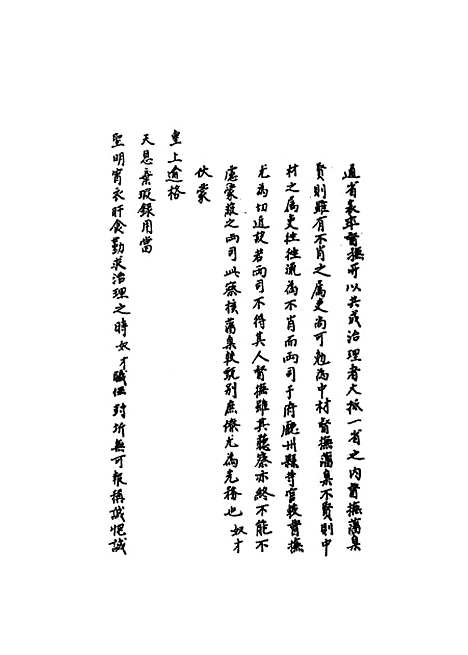 通省表率督撫所以共成治理者大抵一省之內督撫藩臬
賢則雖有不肖之属吏尚可勉為中材督撫藩臬不賢則中
材之属吏往徃流為不肖而兩司于府廳州縣等官較督撫
尤為切近故若兩司不得其人督撫雖其聽察亦終不能不
慮蒙蔽之兩司此察核藩臬較甄别庶僚尤為先務也奴才
伏蒙
皇上逾格
天恩棄瑕録用當
聖明宵衣旰食勤求治理之時奴才職任封圻無可報稱誠悃誠